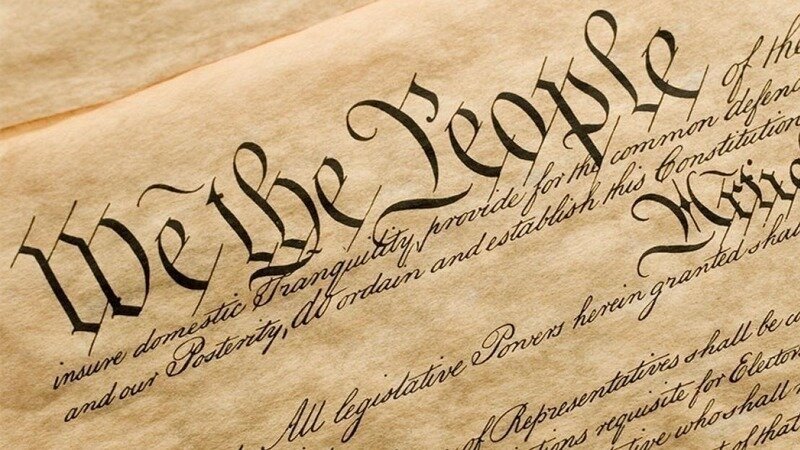 We the People of the
insure domestic Tranquility, provide for the common defenc
and our Posterity, do ordain and establish this Constitution
Artic
All legislative Powers herein granted shal
of Representatives shall be c
requisite for Elector
who shall
of that